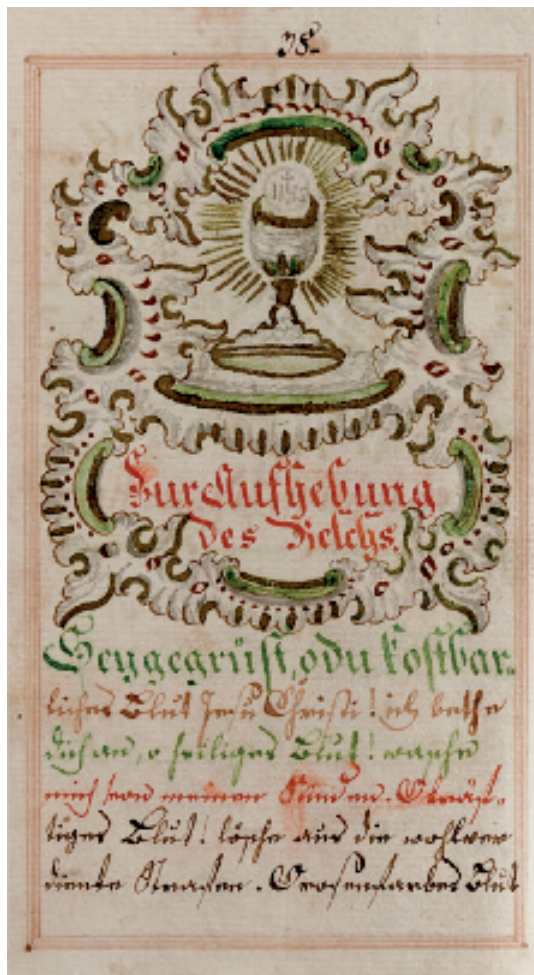 IHS
Zur Aufhebung
des Kelchs.
Sey gegrüst, o du kostbar=
liches Blut Jesu Christi! ich bethe
dich an, o heiliges Blut! wasche
mich von meinen Sünden. Kräf=
tiges Blut! lösche aus die wohlver
diente Strafen. Rosenfarbes Blut